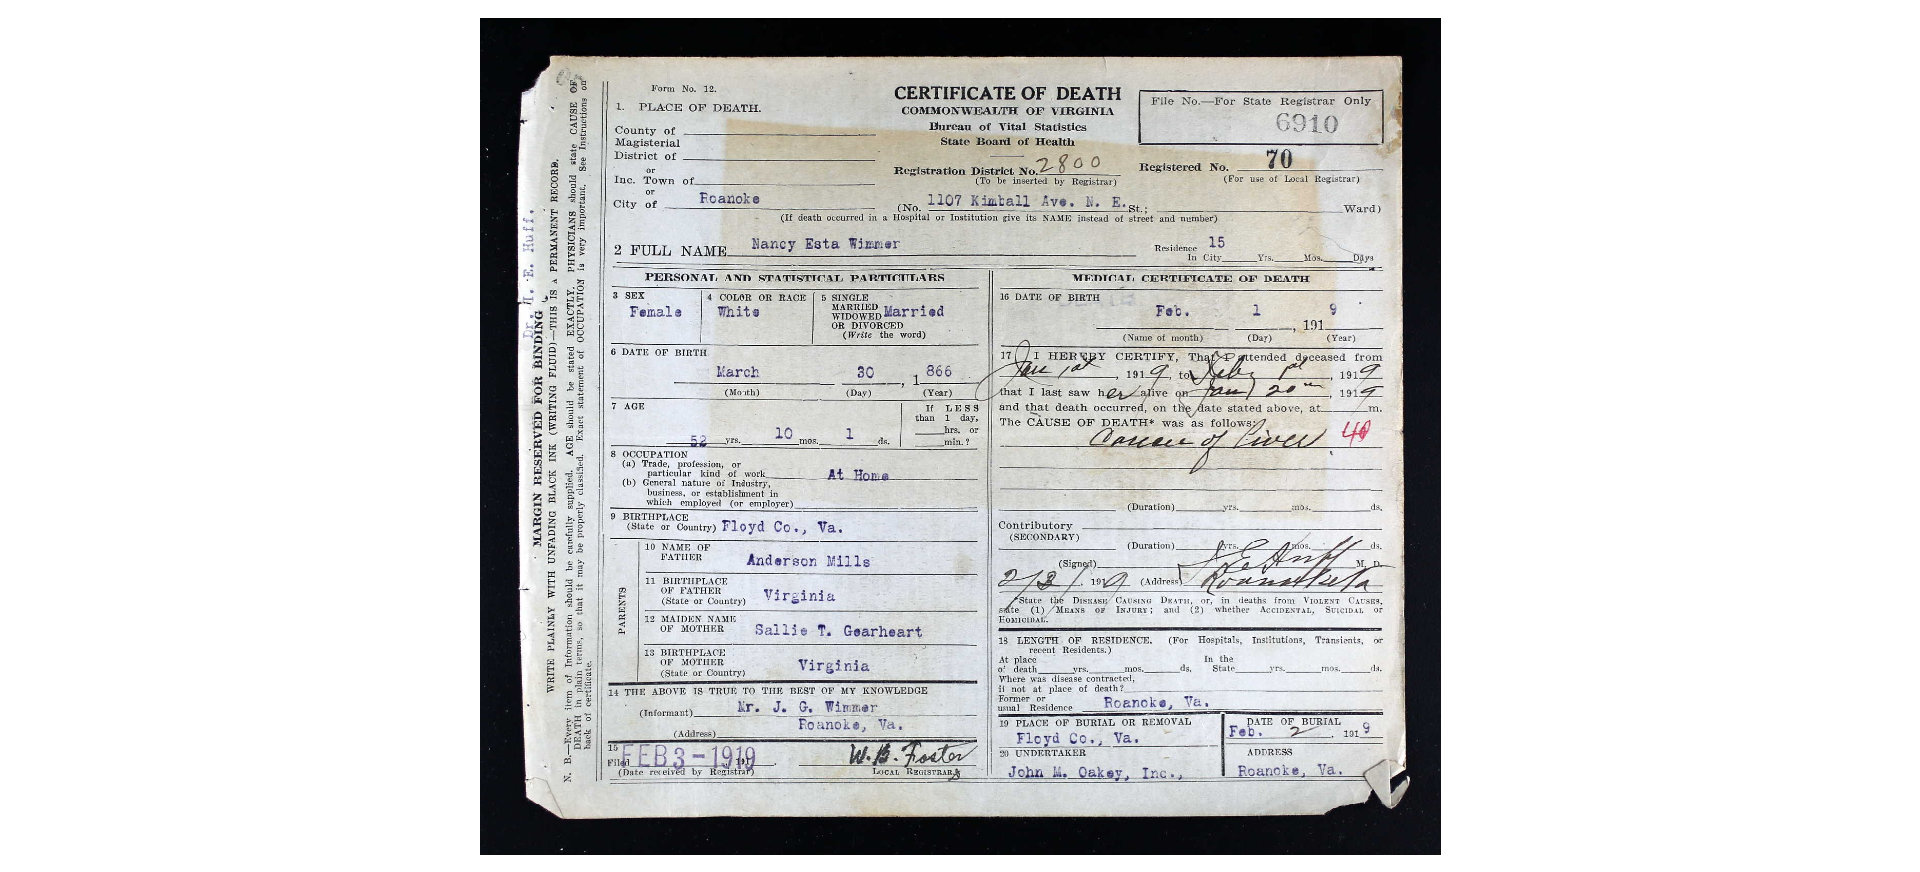 Form No. 12.
1. PLACE OF DEATH.
County of
Magisterial
District of
or
Inc. Town of
or
City of Roanoke
CERTIFICATE OF DEATH
COMMONWEALTH OF VIRGINIA
Bureau of Vital Statistics
State Board of Health
Registration District No. 2800
(To be inserted by Registrar)
File No.—For State Registrar Only
6910
Registered No. 70
(For use of Local Registrar)
(No. 1107 Kimball Ave. N. E. St.; Ward)
(If death occurred in a Hospital or Institution give its NAME instead of street and number)
2 FULL NAME Nancy Esta Wimmer
Residence 15
In City Yrs. Mos. Days
PERSONAL AND STATISTICAL PARTICULARS
3 SEX
Female
4 COLOR OR RACE
White
5 SINGLE
MARRIED
WIDOWED
OR DIVORCED
(Write the word)
Married
6 DATE OF BIRTH
March 30, 1866
(Month) (Day) (Year)
7 AGE
52 yrs. 10 mos. 1 ds.
If LESS
than 1 day,
hrs. or
min.?
8 OCCUPATION
(a) Trade, profession, or
particular kind of work At Home
(b) General nature of Industry,
business, or establishment in
which employed (or employer)
9 BIRTHPLACE
(State or Country) Floyd Co., Va.
PARENTS
10 NAME OF
FATHER Anderson Mills
11 BIRTHPLACE
OF FATHER
(State or Country) Virginia
12 MAIDEN NAME
OF MOTHER Sallie T. Gearheart
13 BIRTHPLACE
OF MOTHER
(State or Country) Virginia
14 THE ABOVE IS TRUE TO THE BEST OF MY KNOWLEDGE
(Informant) Mr. J. G. Wimmer
(Address) Roanoke, Va.
15
Filed FEB 3-1919 191
(Date received by Registrar)
W. B. Foster
LOCAL REGISTRAR
MEDICAL CERTIFICATE OF DEATH
16 DATE OF BIRTH
Feb. 1, 1919
(Name of month) (Day) (Year)
17 I HEREBY CERTIFY, That I attended deceased from
Jan 1st, 1919, to Feby 1st, 1919
that I last saw her alive on Jany 20th, 1919
and that death occurred, on the date stated above, at m.
The CAUSE OF DEATH* was as follows:
Cancer of liver 40
(Duration) yrs. mos. ds.
Contributory
(SECONDARY)
(Duration) yrs. mos. ds.
(Signed) Huff M. D.
2/3/1919 (Address)
*State the DISEASE CAUSING DEATH, or, in deaths from VIOLENT CAUSES,
state (1) MEANS OF INJURY; and (2) whether ACCIDENTAL, SUICIDAL or
HOMICIDAL.
18 LENGTH OF RESIDENCE. (For Hospitals, Institutions, Transients, or
recent Residents.)
At place
of death yrs. mos. ds.
In the
State yrs. mos. ds.
Where was disease contracted,
if not at place of death?
Former or
usual Residence Roanoke, Va.
19 PLACE OF BURIAL OR REMOVAL
Floyd Co., Va.
DATE OF BURIAL
Feb. 2, 1919
20 UNDERTAKER
John M. Oakey, Inc.,
ADDRESS
Roanoke, Va.
Dr. E. Huff.
MARGIN RESERVED FOR BINDING
WRITE PLAINLY WITH UNFADING BLACK INK (WRITING FLUID)—THIS IS A PERMANENT RECORD.
N. B.—Every item of Information should be carefully supplied. AGE should be stated EXACTLY. PHYSICIANS should state CAUSE OF
DEATH in plain terms, so that it may be properly classified. Exact statement of OCCUPATION is very important. See Instructions on
back of certificate.